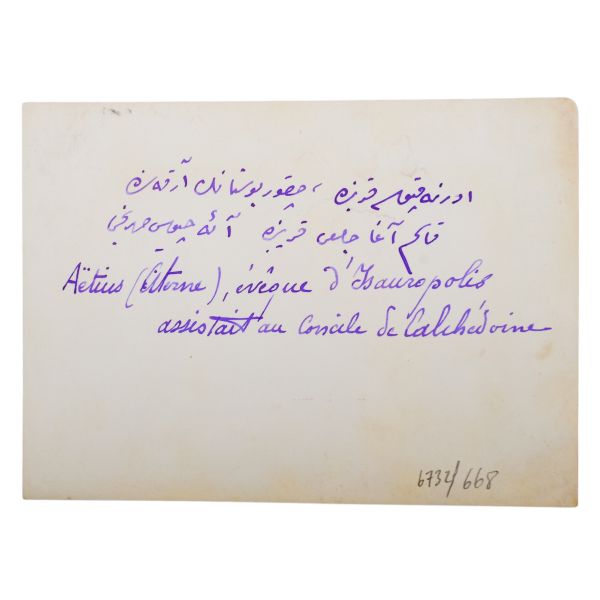 ادرنه قپوسی قربنده ، چقور بوستانك آرقه سنده
قاسم آغا جامعی قربنده آئه
Aëtius (Citerne), évêque d'Isauropolis
assistait au Concile de Calchédoine
6732/668